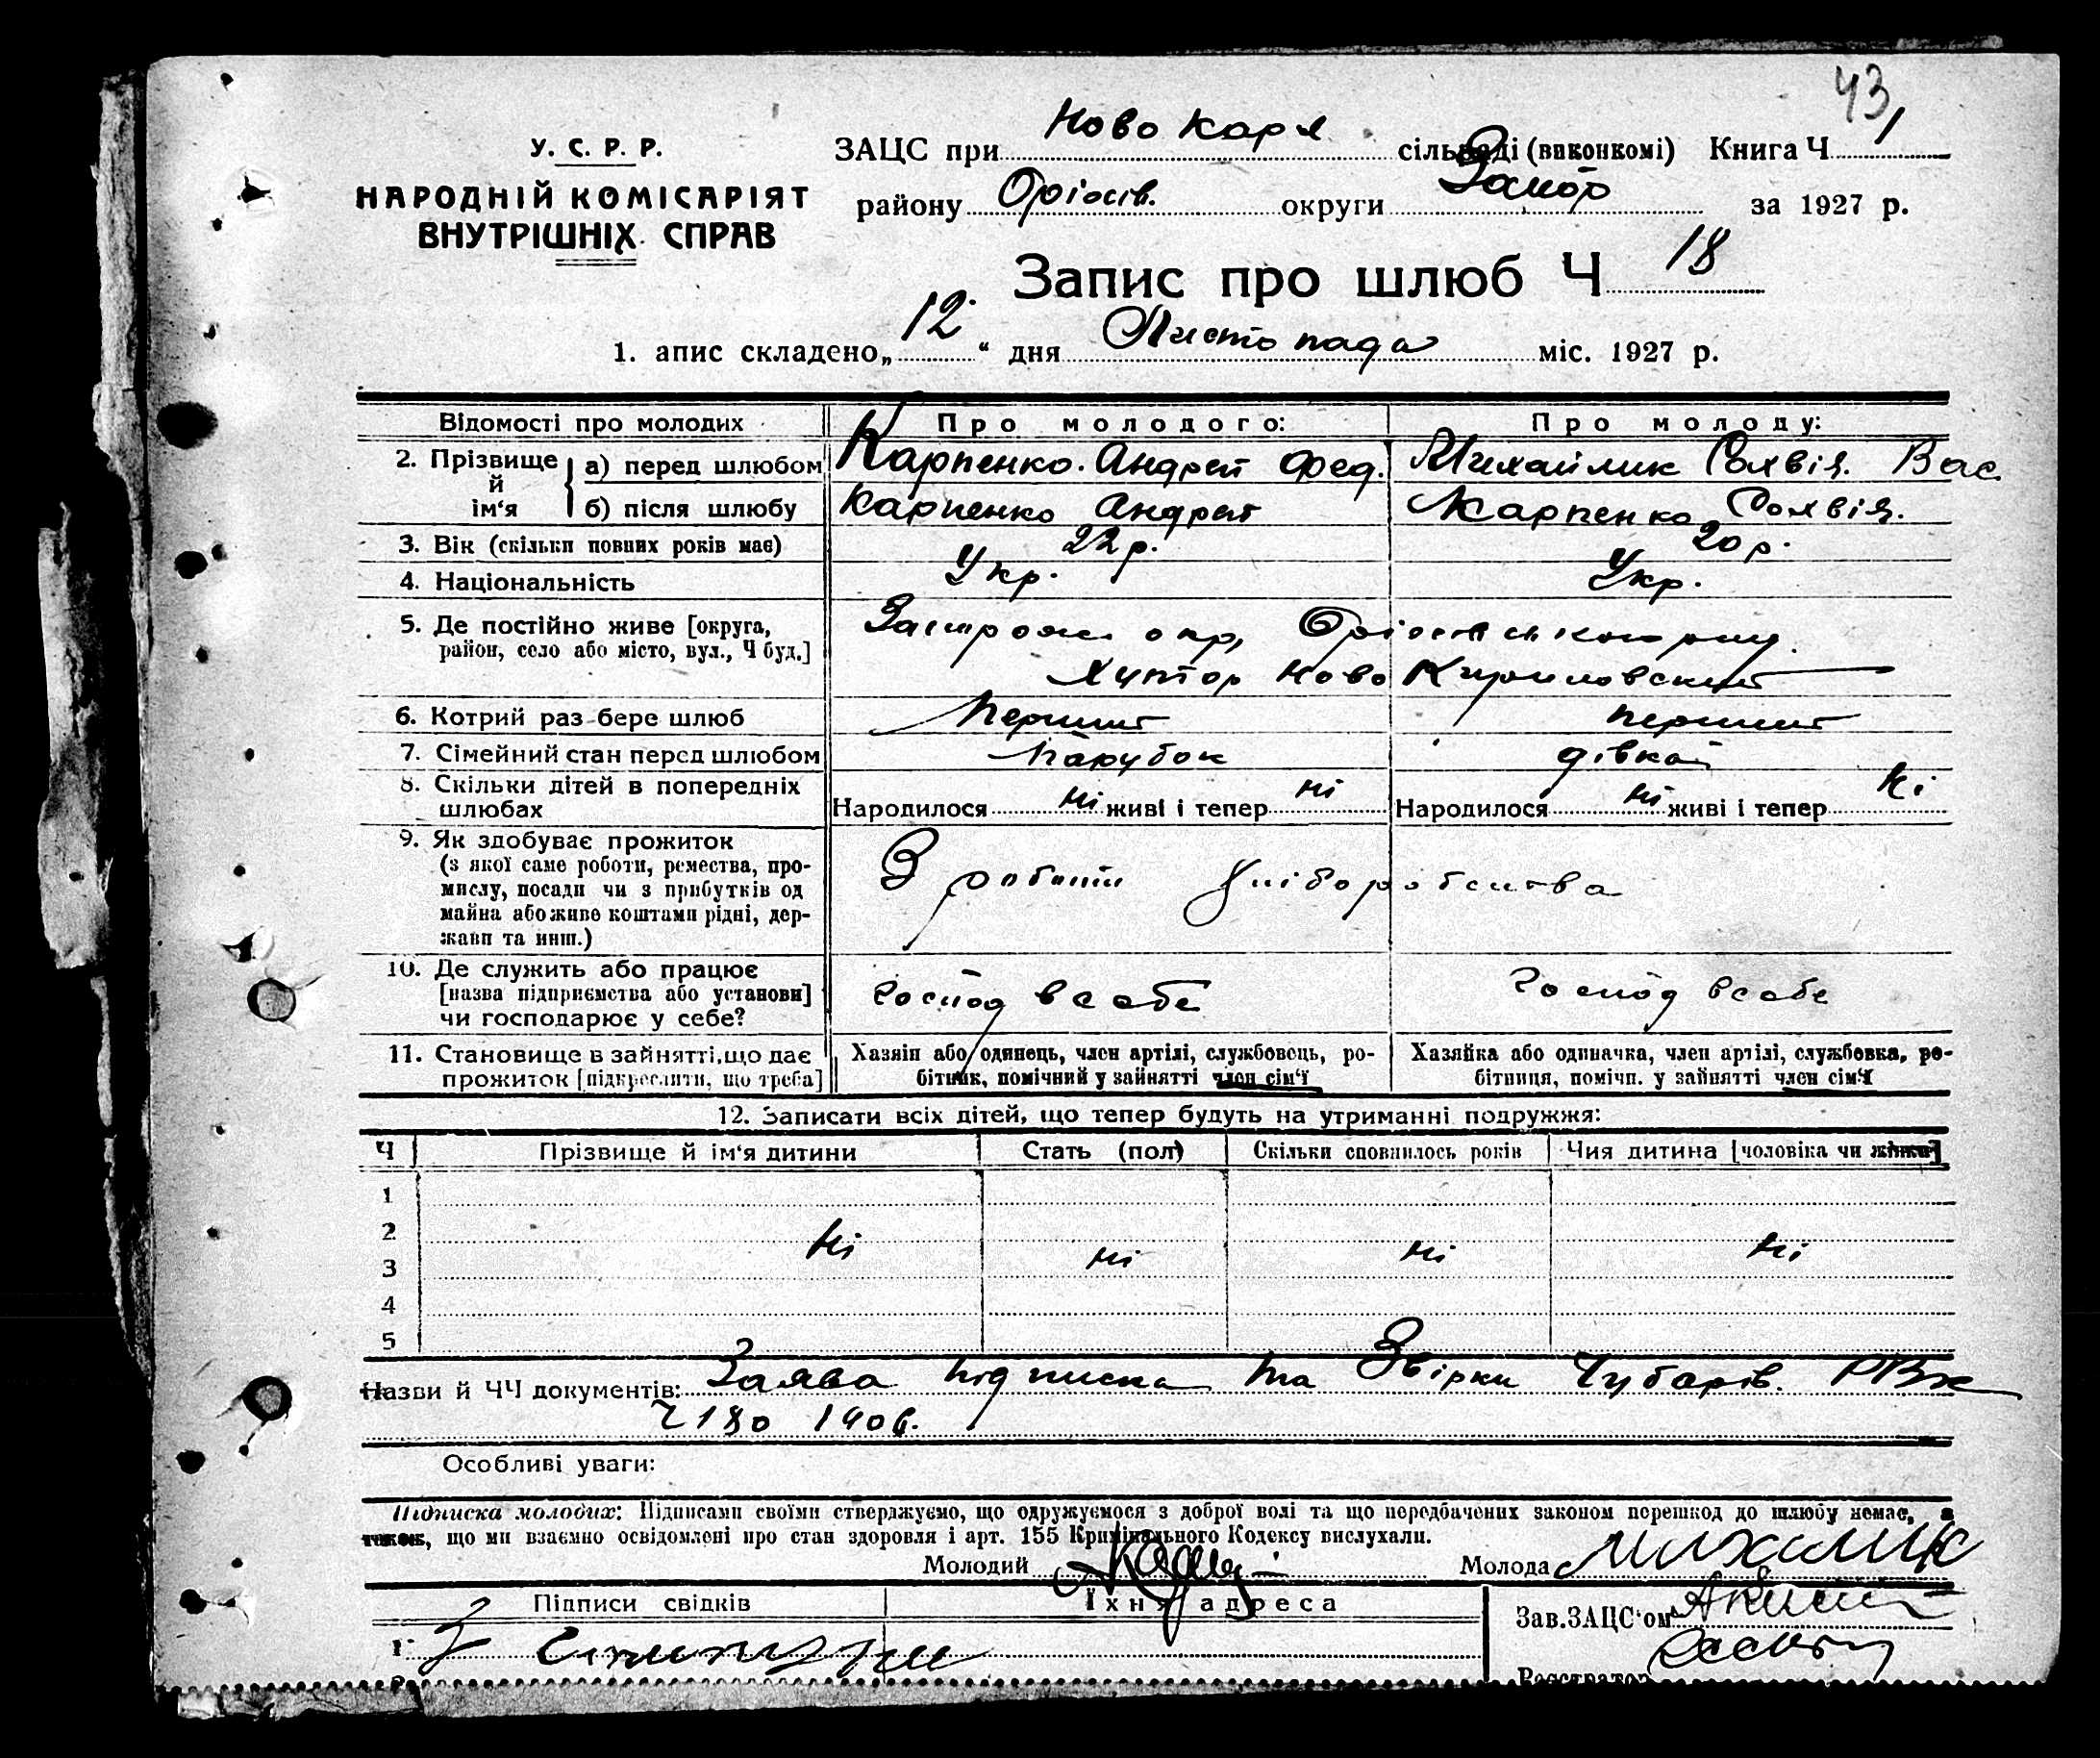 43
У. С. Р. Р.
НАРОДНІЙ КОМІСАРІЯТ
ВНУТРІШНІХ СПРАВ
ЗАЦС при Ново Карл сільраді (виконкомі) Книга Ч 1
району Оріхів. округи Запор за 1927 р.
Запис про шлюб Ч 18
1. апис складено „ 12 “ дня Листопада міс. 1927 р.
Відомості про молодих
Про молодого:
Про молоду:
2. Прізвище й ім‘я
а) перед шлюбом
Карпенко Андрей Фед.
Михайлик Софвія. Вас.
б) після шлюбу
Карпенко Андрей
Карпенко Софвія.
3. Вік (скільки повних років має)
22 р.
20 р.
4. Національність
Укр.
Укр.
5. Де постійно живе [округа,
район, село або місто, вул., Ч буд.]
окр,
Хутор Ново Кириловский
6. Котрий раз бере шлюб
Перший
перший
7. Сімейний стан перед шлюбом
Парубок
дівка
8. Скільки дітей в попередніх
шлюбах
Народилося ні живі і тепер ні
Народилося ні живі і тепер ні
9. Як здобуває прожиток
(з якої саме роботи, ремества, про-
мислу, посади чи з прибутків од
майна або живе коштами рідні, дер-
жави та инш.)
З роботи хліборобства
10. Де служить або працює
[назва підприємства або установи]
чи господарює у себе?
господ в себе
господ в себе
11. Становище в зайнятті, що дає
прожиток [підкреслити, що треба]
Хазяїн або одинець, член артілі, службовець, ро-
бітник, помічний у зайнятті член сім‘ї
Хазяйка або одиначка, член артілі, службовка, ро-
бітниця, помічн. у зайнятті член сім‘ї
12. Записати всіх дітей, що тепер будуть на утриманні подружжя:
Ч
Прізвище й ім‘я дитини
Стать (пол)
Скільки сповнилось років
Чия дитина [чоловіка чи жінки]
1
2
ні ні ні ні
3
4
5
Назви й ЧЧ документів: Заява підписка та Звірки Чубарів. РВК
Ч 180 1906.
Особливі уваги:
Підписка молодих: Підписами своїми стверджуємо, що одружуємося з доброї волі та що передбачених законом перешкод до шлюбу немає, а
також, що ми взаємно освідомлені про стан здоровля і арт. 155 Кримінального Кодексу вислухали.
Молодий
Молода
Підписи свідків
Їхня адреса
Зав. ЗАЦС‘ом
1
Реєстратор